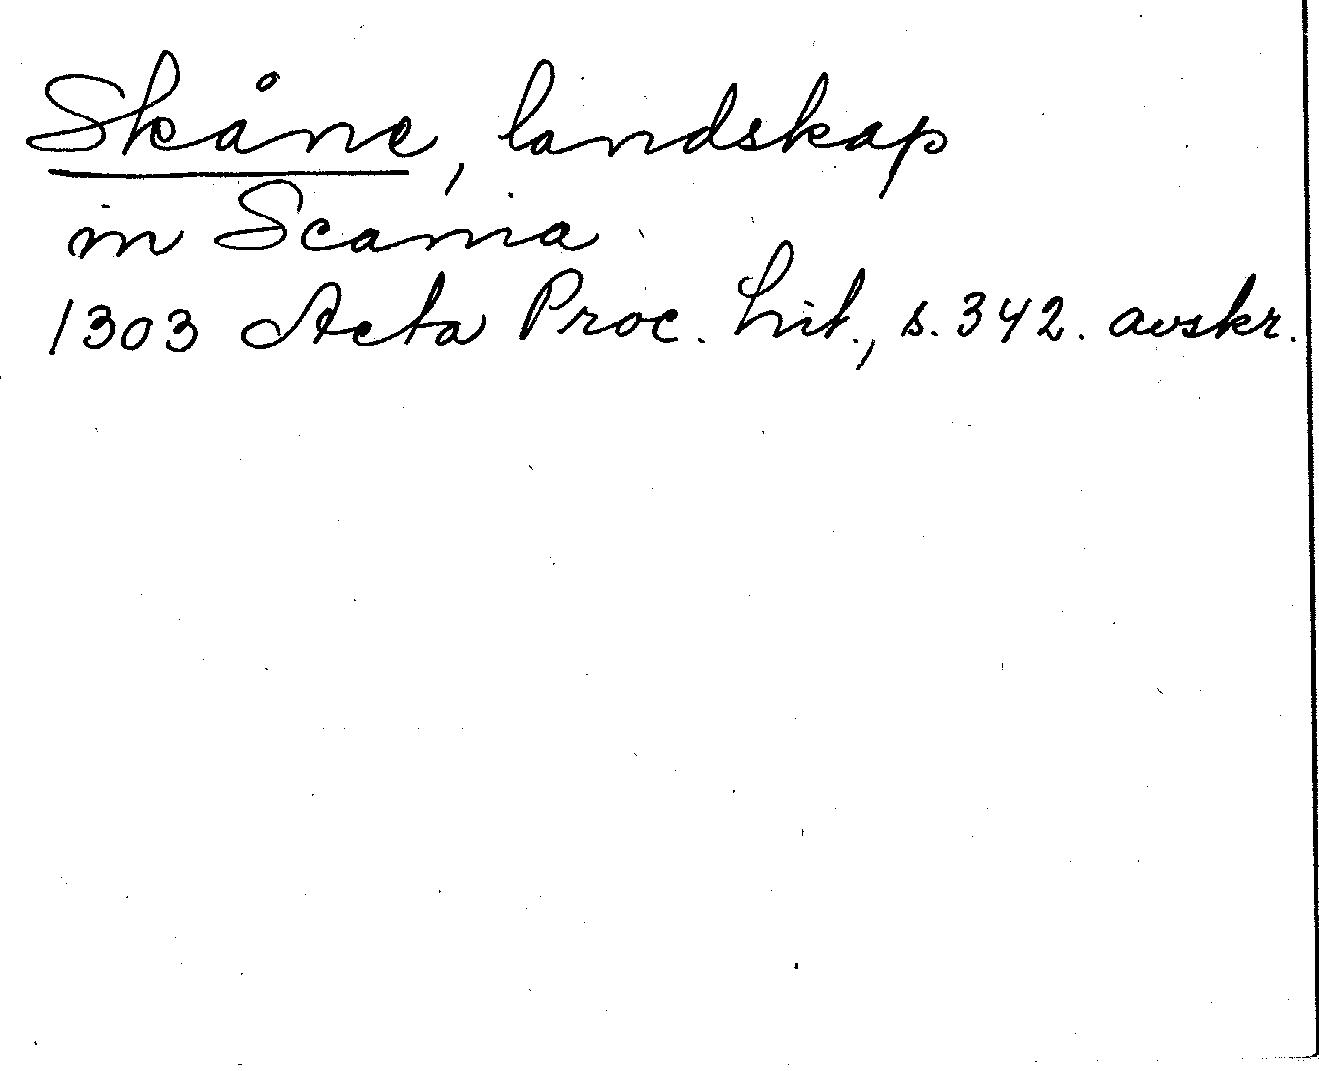 Skåne, landskap
in Scania
1303 Acta Proc. Lit., s. 342. avskr.